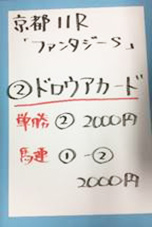 京都11R
「ファンタジーS」
②ドロウアカード
単勝 ② 2000円
馬連 ①-②
2000円